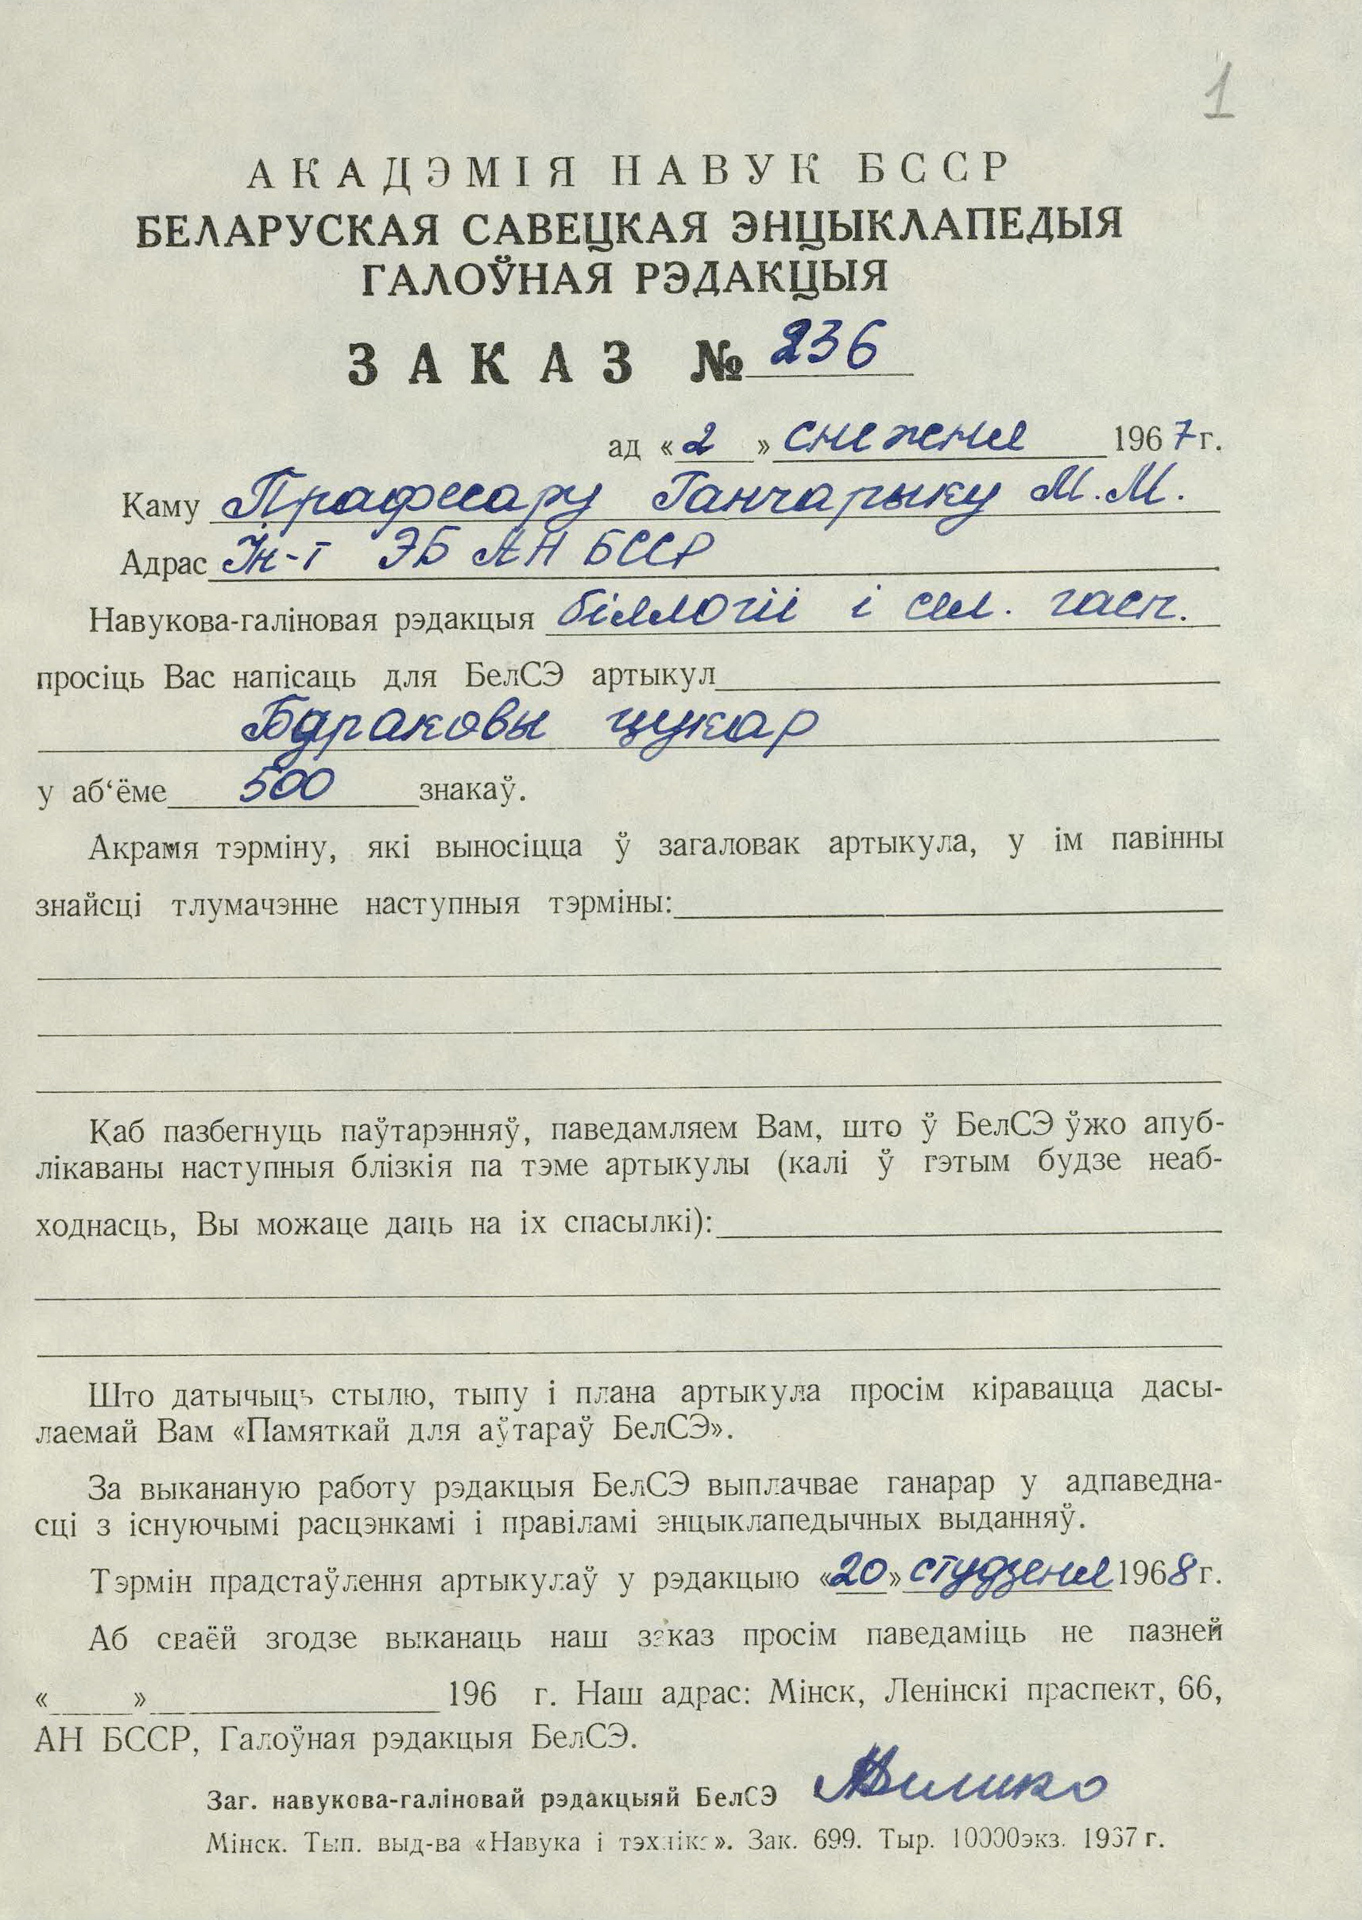 1
АКАДЭМІЯ НАВУК БССР
БЕЛАРУСКАЯ САВЕЦКАЯ ЭНЦЫКЛАПЕДЫЯ
ГАЛОЎНАЯ РЭДАКЦЫЯ
ЗАКАЗ № 236
ад «2» снежня 1967 г.
Каму Прафесару Ганчарыку М.М.
Адрас Ін-т ЭБ АН БССР
Навукова-галіновая рэдакцыя біялогіі і сел. гасп.
просіць Вас напісаць для БелСЭ артыкул
Бураковы цукар
у аб‘ёме 500 знакаў.
Акрамя тэрміну, які выносіцца ў загаловак артыкула, у ім павінны
знайсці тлумачэнне наступныя тэрміны:
Каб пазбегнуць паўтарэнняў, паведамляем Вам, што ў БелСЭ ўжо апуб-
лікаваны наступныя блізкія па тэме артыкулы (калі ў гэтым будзе неаб-
ходнасць, Вы можаце даць на іх спасылкі):
Што датычыць стылю, тыпу і плана артыкула просім кіравацца дасы-
лаемай Вам «Памяткай для аўтараў БелСЭ».
За выкананую работу рэдакцыя БелСЭ выплачвае ганарар у адпаведна-
сці з існуючымі расцэнкамі і правіламі энцыклапедычных выданняў.
Тэрмін прадстаўлення артыкулаў у рэдакцыю «20» студзеня 1968 г.
Аб сваёй згодзе выканаць наш заказ просім паведаміць не пазней
« » 196 г. Наш адрас: Мінск, Ленінскі праспект, 66,
АН БССР, Галоўная рэдакцыя БелСЭ.
Заг. навукова-галіновай рэдакцыяй БелСЭ
Мінск. Тып. выд-ва «Навука і тэхніка». Зак. 699. Тыр. 10000экз. 1967 г.